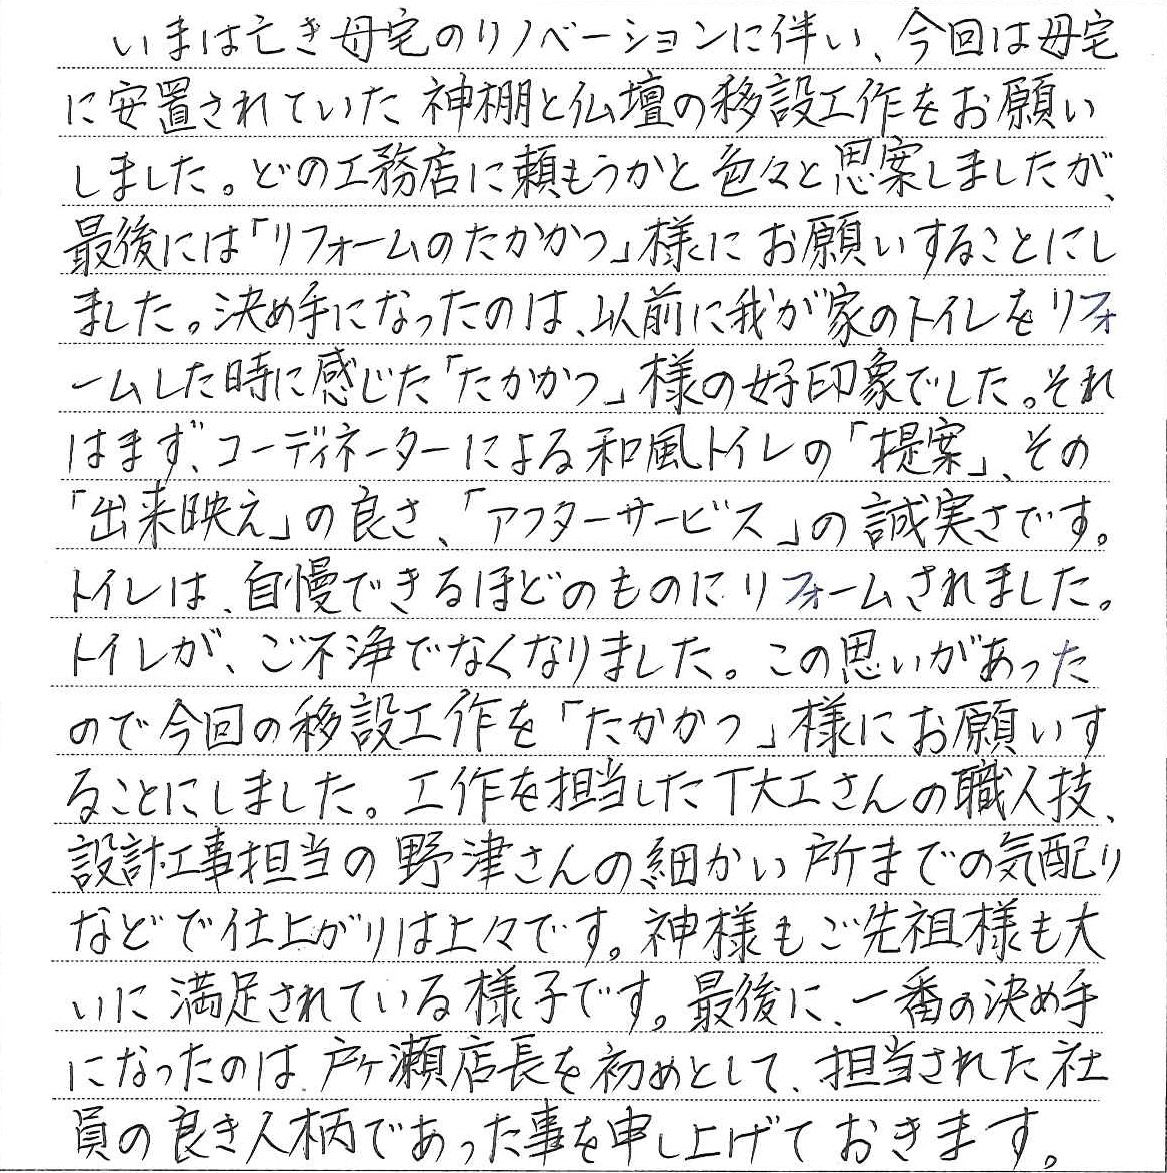 いまは亡き母宅のリノベーションに伴い、今回は母宅
に安置されていた神棚と仏壇の移設工作をお願い
しました。どの工務店に頼もうかと色々と思案しましたが、
最後には「リフォームのたかかつ」様にお願いすることにし
ました。決め手になったのは、以前に我が家のトイレをリフォ
ームした時に感じた「たかかつ」様の好印象でした。それ
はまず、コーディネーターによる和風トイレの「提案」、その
「出来映え」の良さ、「アフターサービス」の誠実さです。
トイレは、自慢できるほどのものにリフォームされました。
トイレが、ご不浄でなくなりました。この思いがあった
ので今回の移設工作を「たかかつ」様にお願いす
ることにしました。工作を担当したT大工さんの職人技、
設計工事担当の野津さんの細かい所までの気配り
などで仕上がりは上々です。神様もご先祖様も大
いに満足されている様子です。最後に、一番の決め手
になったのは、戸ヶ瀬店長を初めとして、担当された社
員の良き人柄であった事を申し上げておきます。